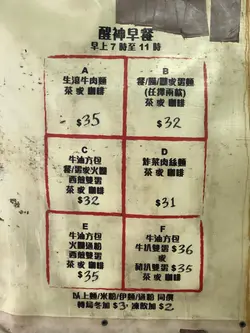 醒神早餐
早上7時至11時
A
生滾牛肉麵
茶或咖啡
$35
B
餐/腸/腿或蛋麵
(任擇兩款)
茶或咖啡
$32
C
牛油方包
餐/蛋或火腿
西煎雙蛋
茶或咖啡
$32
D
炸菜肉絲麵
茶或咖啡
$31
E
牛油方包
火腿通粉
西煎雙蛋
茶或咖啡
$35
F
牛油方包
牛扒雙蛋 $36
或
豬扒雙蛋 $35
茶或咖啡
以上麵/米粉/伊麵/通粉 同價
轉烏冬加 $3, 凍飲加 $2